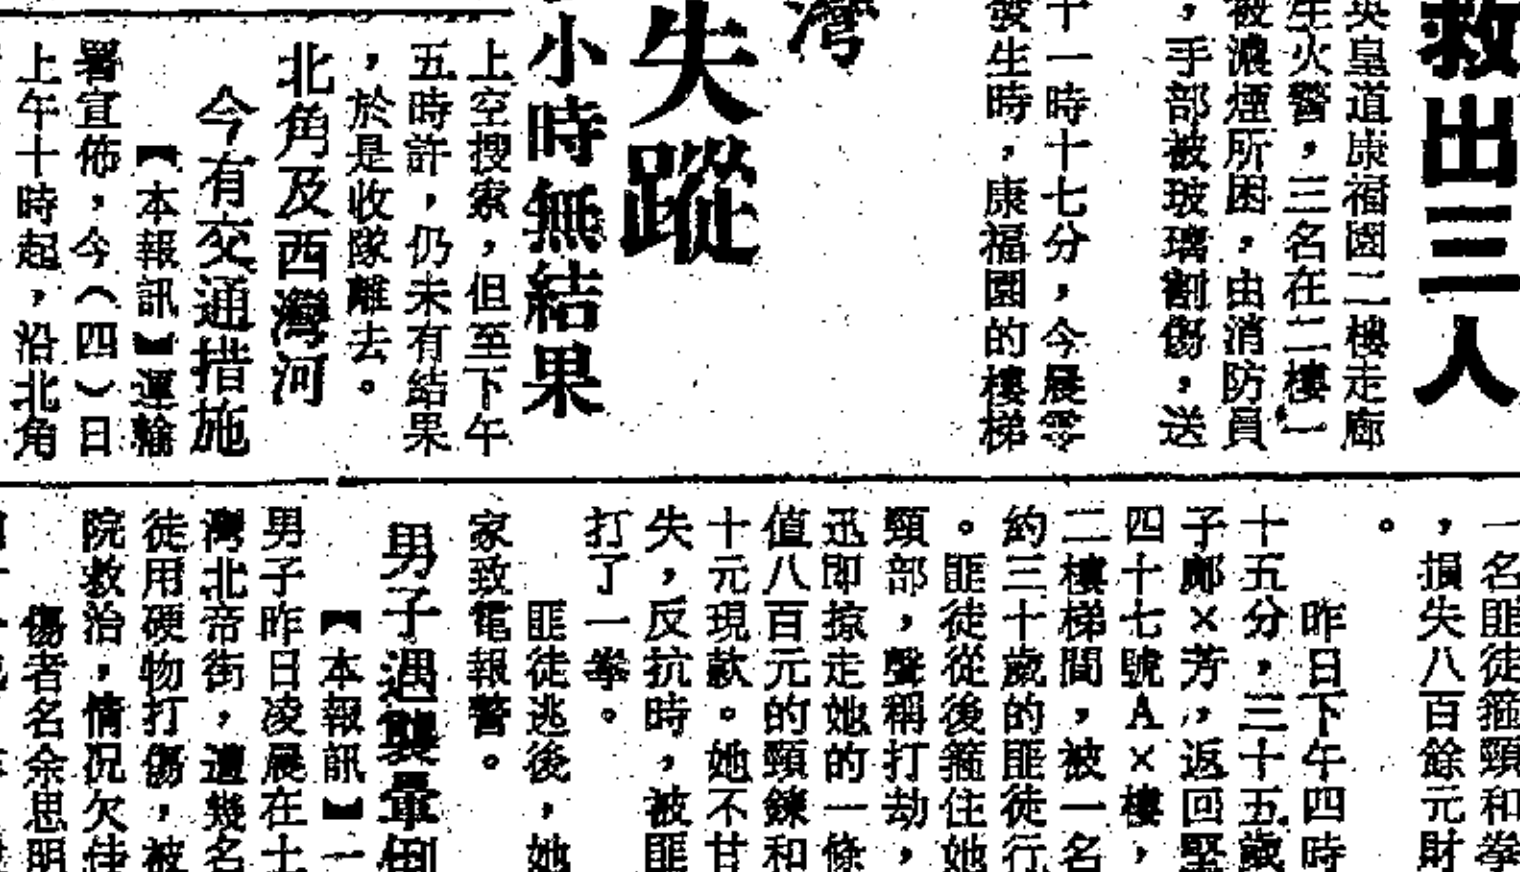 救出三人
英皇道康福園二樓走廊
生火警，三名在二樓一
被濃煙所困，由消防員
，手部被玻璃割傷，送
十一時十七分，今晨零
發生時，康福園的樓梯
灣
失蹤
小時無結果
上空搜索，但至下午
五時許，仍未有結果
，於是收隊離去。
北角及西灣河
今有交通措施
【本報訊】運輸
署宣佈，今（四）日
上午十時起，沿北角
一名匪徒箍頸和拳
，損失八百餘元財
。
昨日下午四時
十五分，三十五歲
子鄺×芳，返回堅
四十七號A×樓，
二樓梯間，被一名
約三十歲的匪徒行
。匪徒從後箍住她
頸部，聲稱打劫，
迅即掠走她的一條
值八百元的頸鍊和
十元現款。她不甘
失，反抗時，被匪
打了一拳。
匪徒逃後，她
家致電報警。
男子遇襲暈倒
【本報訊】一
男子昨日凌晨在土
灣北帝街，遭幾名
徒用硬物打傷，被
院救治，情況欠佳
傷者名余思明